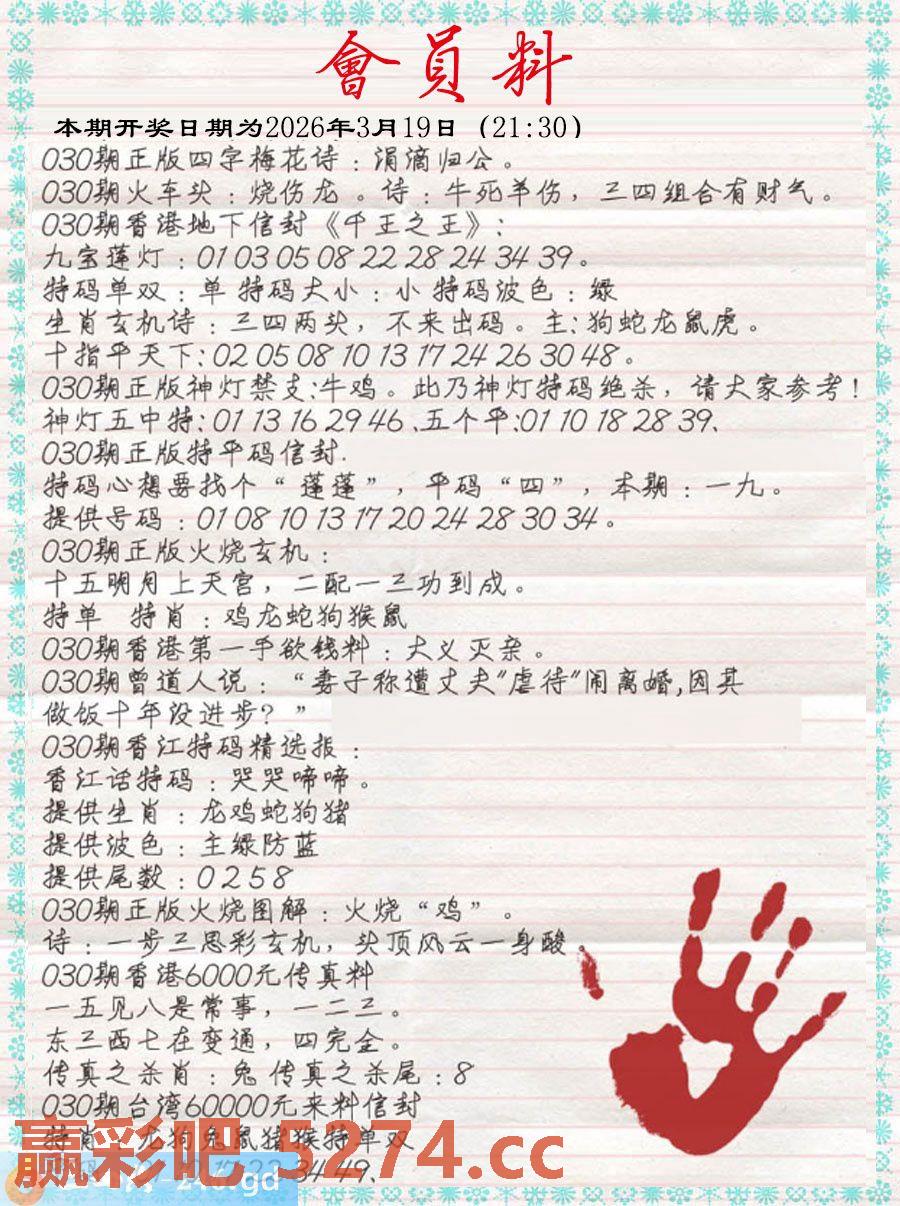 會員料
本期开奖日期为2026年3月19日（21:30）
030期正版四字梅花诗：涓滴归公。
030期火车头：烧伤龙。诗：牛死羊伤，三四组合有财气。
030期香港地下信封《千王之王》：
九宝莲灯：01 03 05 08 22 28 24 34 39。
特码单双：单 特码大小：小 特码波色：绿
生肖玄机诗：三四两头，不来出码。主：狗蛇龙鼠虎。
十指平天下：02 05 08 10 13 17 24 26 30 48。
030期正版神灯禁支：牛鸡。此乃神灯特码绝杀，请大家参考！
神灯五中特：01 13 16 29 46、五个平：01 10 18 28 39、
030期正版特平码信封.
特码心想要找个“蓬蓬”，平码“四”，本期：一九。
提供号码：01 08 10 13 17 20 24 28 30 34。
030期正版火烧玄机：
十五明月上天宫，二配一三功到成。
特单 特肖：鸡龙蛇狗猴鼠
030期香港第一手欲钱料：大义灭亲。
030期曾道人说：“妻子称遭丈夫"虐待"闹离婚,因其
做饭十年没进步？”
030期香江特码精选报：
香江话特码：哭哭啼啼。
提供生肖：龙鸡蛇狗猪
提供波色：主绿防蓝
提供尾数：0 2 5 8
030期正版火烧图解：火烧“鸡”。
诗：一步三思彩玄机，头顶风云一身酸。
030期香港6000元传真料
一五见八是常事，一二三。
东三西七在变通，四完全。
传真之杀肖：兔 传真之杀尾：8
030期台湾60000元来料信封
特肖：龙狗兔鼠猪猴特单双
34 49、
赢彩吧.5274.cc